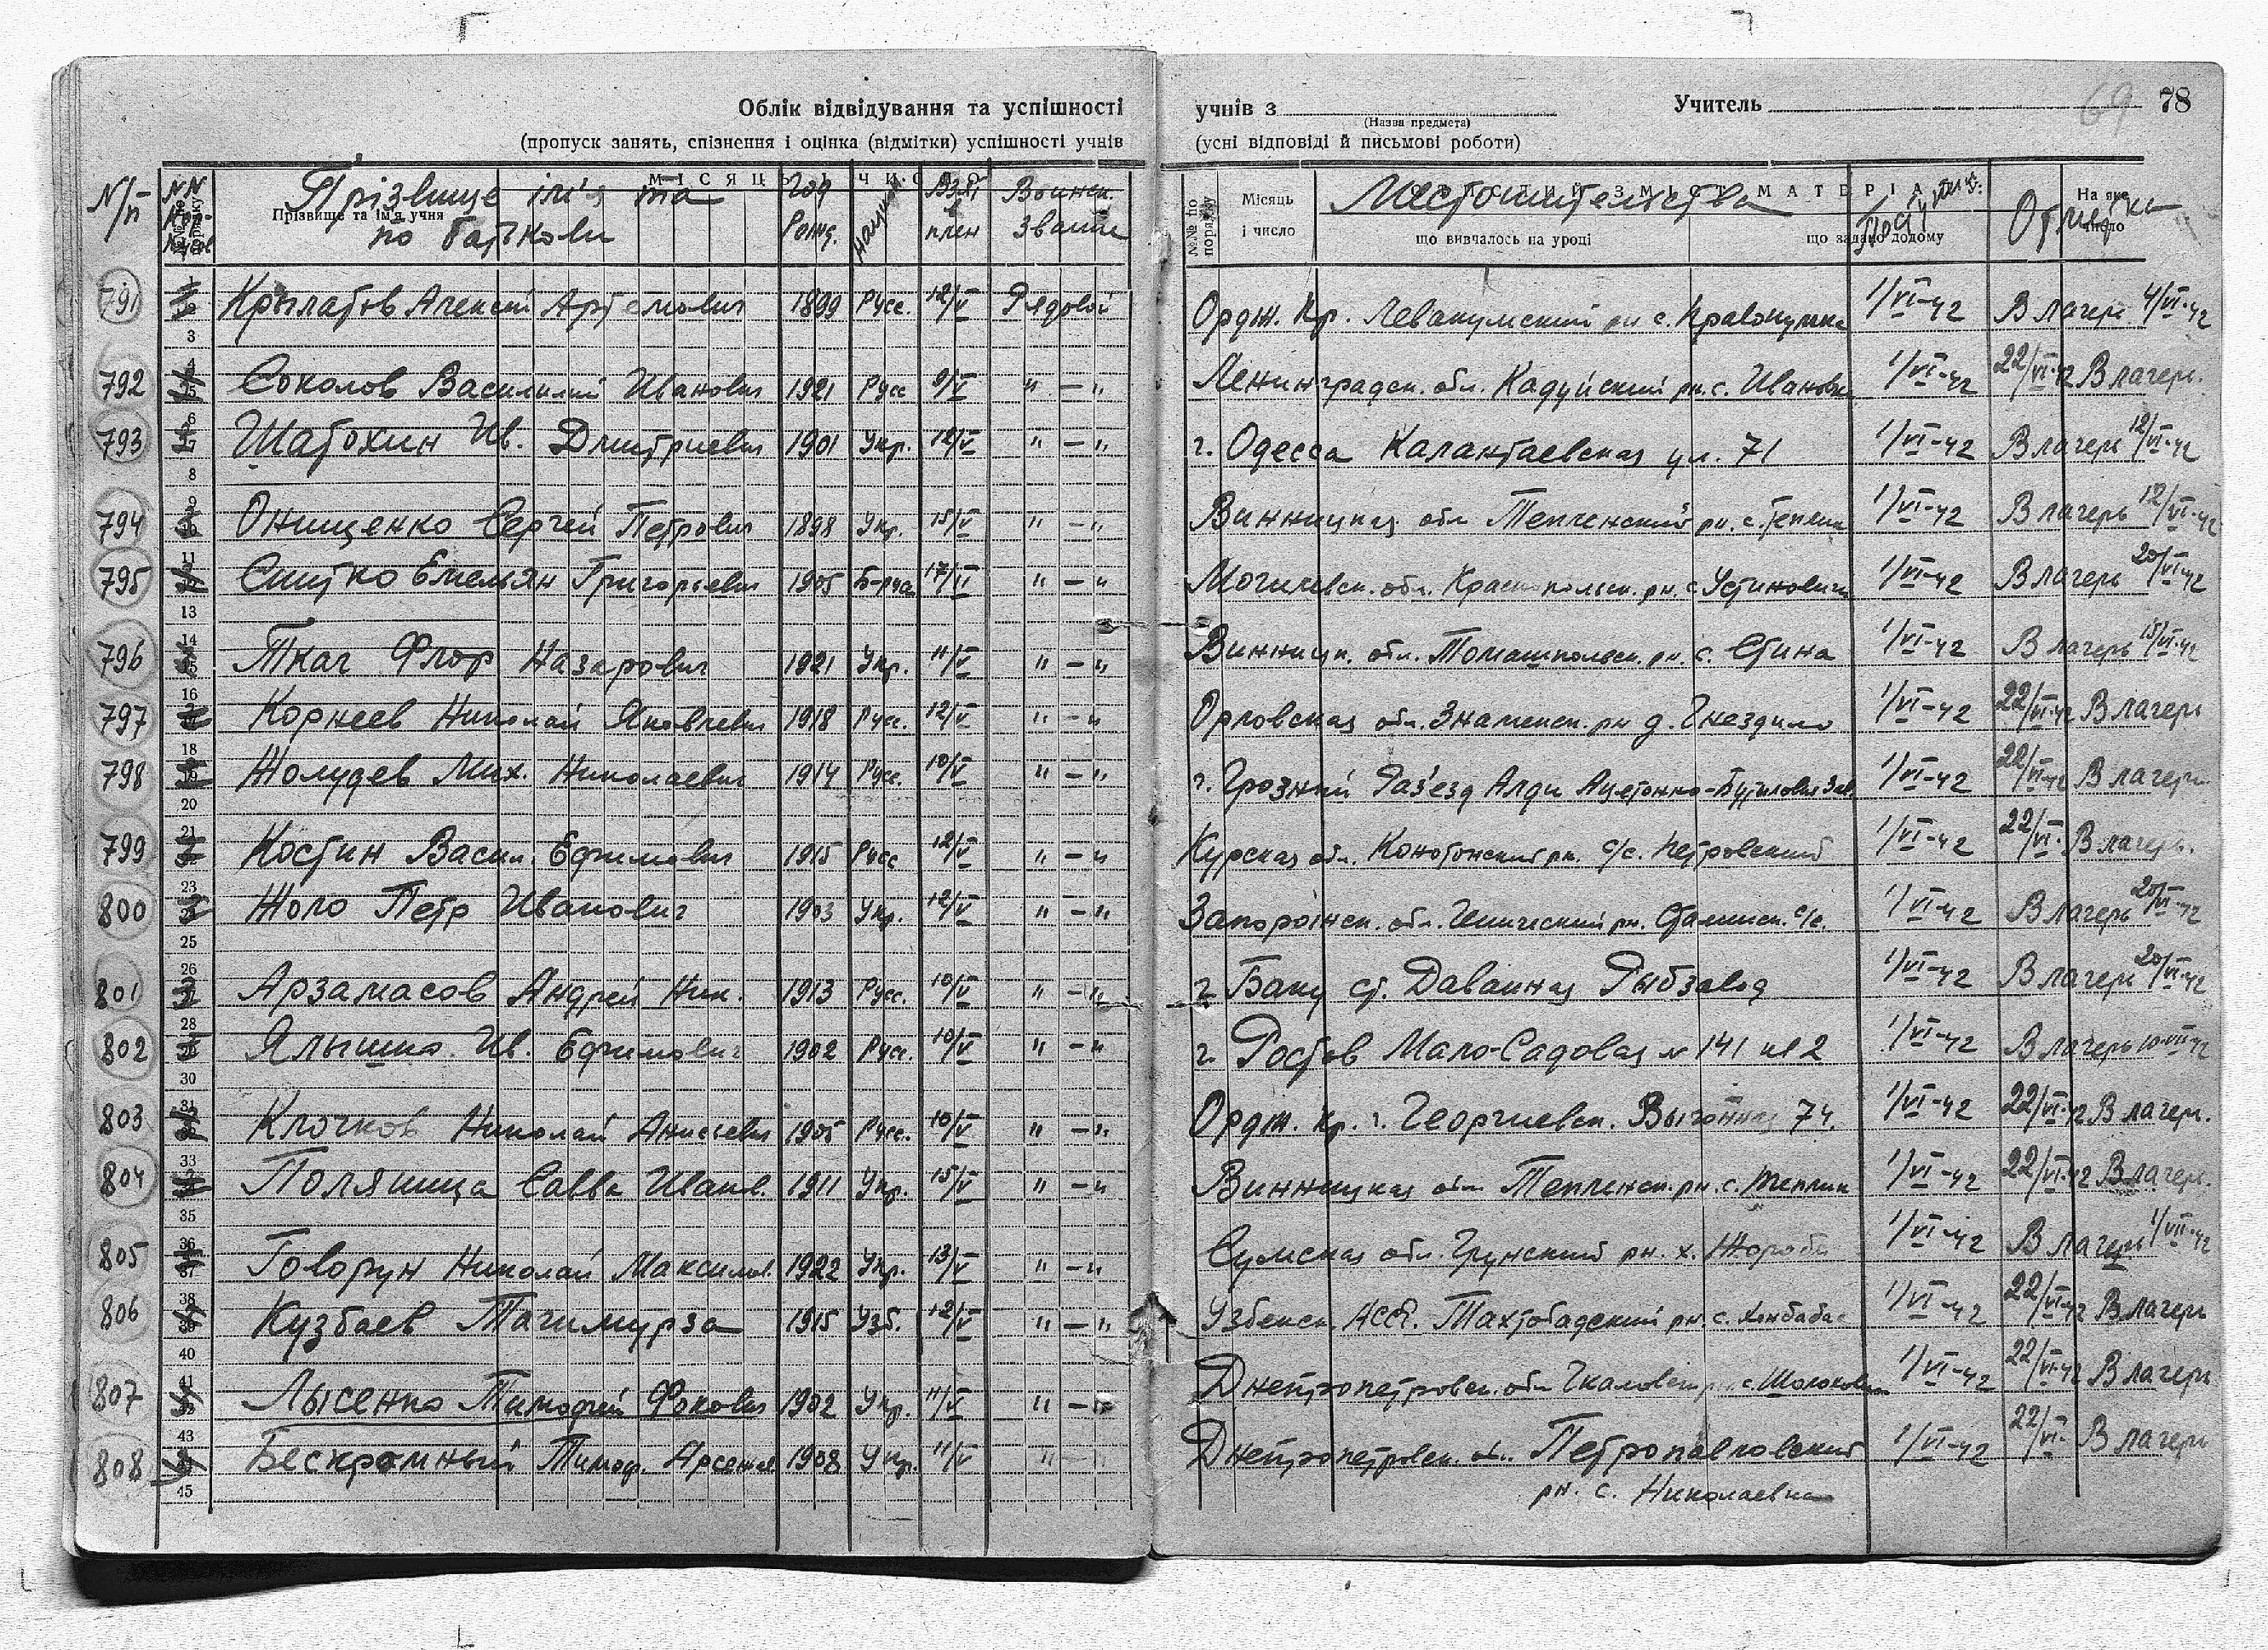 Облік відвідування та успішності учнів з Учитель 69 78
(Назва предмета)
(пропуск занять, спізнення і оцінка (відмітки) успішності учнів (усні відповіді й письмові роботи)
N/п Прізвище ім'я та по батькові Год Рожд. национ. Взят в плен Воинск. звание Местожительства Отметка
Прізвище та ім'я учня МІСЯЦЬ І ЧИСЛО №№ по порядку Місяць і число що вивчалось на уроці що задано додому На яке число
791 Крылатов Алексей Артемович 1899 Русс. 12/V Рядовой Ордж. Кр. Левакумский рн с. Правокумка 1/VI-42 В лагерь 4/VI-42
792 Соколов Василий Иванович 1921 Русс 9/V " — " Ленинградск. обл. Кадуйский рн. с. 1/VI-42 22/VI-42 В лагерь.
793 Шатохин Ив. Дмитриевич 1901 Укр. 12/V " — " г. Одесса Калантаевская ул. 71 1/VI-42 В лагерь 12/VI-42
794 Онищенко Сергей Петрович 1898 Укр. 15/V " — " Винницкая обл Тепленский рн. с. 1/VI-42 В лагерь 12/VI-42
795 Снитко Емельян Григорьевич 1905 17/V " — " Могилевск. обл. Краснопольск. рн. с Устиновичи 1/VI-42 В лагерь 20/VI-42
796 Ткач Флор Назарович 1921 Укр. 11/V " — " Винницк. обл. Томашпольск. рн. с. Стина 1/VI-42 В лагерь 15/VI-42
797 Корнеев Николай Яковлевич 1918 Русс. 12/V " — " Орловская обл. Знаменск. рн д. Гнездило 1/VI-42 22/VI-42 В лагерь
798 Жолудев Мих. Николаевич 1914 Русс. 10/V " — " г. Грозный Раз'езд Алди Ацетонно-Бутиловый Зав. 1/VI-42 22/VI-42 В лагерь
799 Костин Васил. Ефимович 1915 Русс 12/V " — " Курская обл. рн. с/с. Петровский 1/VI-42 22/VI- В лагерь.
800 Жоло Петр Иванович 1903 Укр. 12/V " — " Запорожск. обл. Генический рн. Сталинск. с/с. 1/VI-42 В лагерь 20/VI-42
801 Арзамасов Андрей Ник. 1913 Русс. 10/V " — " г. Баку ст. Рыбзавод 1/VI-42 В лагерь 20/VI-42
802 Ялышко. Ив. Ефимович 1902 Русс. 10/V " — " г. Ростов Мало-Садовая № 141 кв 2 1/VI-42 В лагерь 10-VII-42
803 Клочков Николай Анисьевич 1905 Русс. 10/V " — " Ордж. кр. г. Георгиевск. Выгонная 74. 1/VI-42 22/VI-42 В лагерь.
804 Поляница Савва Иванов. 1911 Укр. 15/V " — " Винницкая обл Тепленск. рн. с. Теплик 1/VI-42 22/VI-42 В лагерь.
805 Говорун Николай Максимов. 1922 Укр. 13/V " — " Сумская обл. Грунский рн. х. 1/VI-42 В лагерь 1/VII-42
806 Кузбаев Тагимурза 1915 Узб. 12/V " — " Узбекск АССР. Тахтобадский рн. с. 1/VI-42 22/VI-42 В лагерь
807 Лысенко Тимофей Фокович 1902 Укр. 11/V " — " Днепропетровск. обл с. 1/VI-42 22/VI-42 В лагерь
808 Бескромный Тимоф. Арсенов 1908 Укр. 11/V " — " Днепропетровск. об. Петропавловский 1/VI-42 22/VI- В лагерь
рн. с. Николаевка